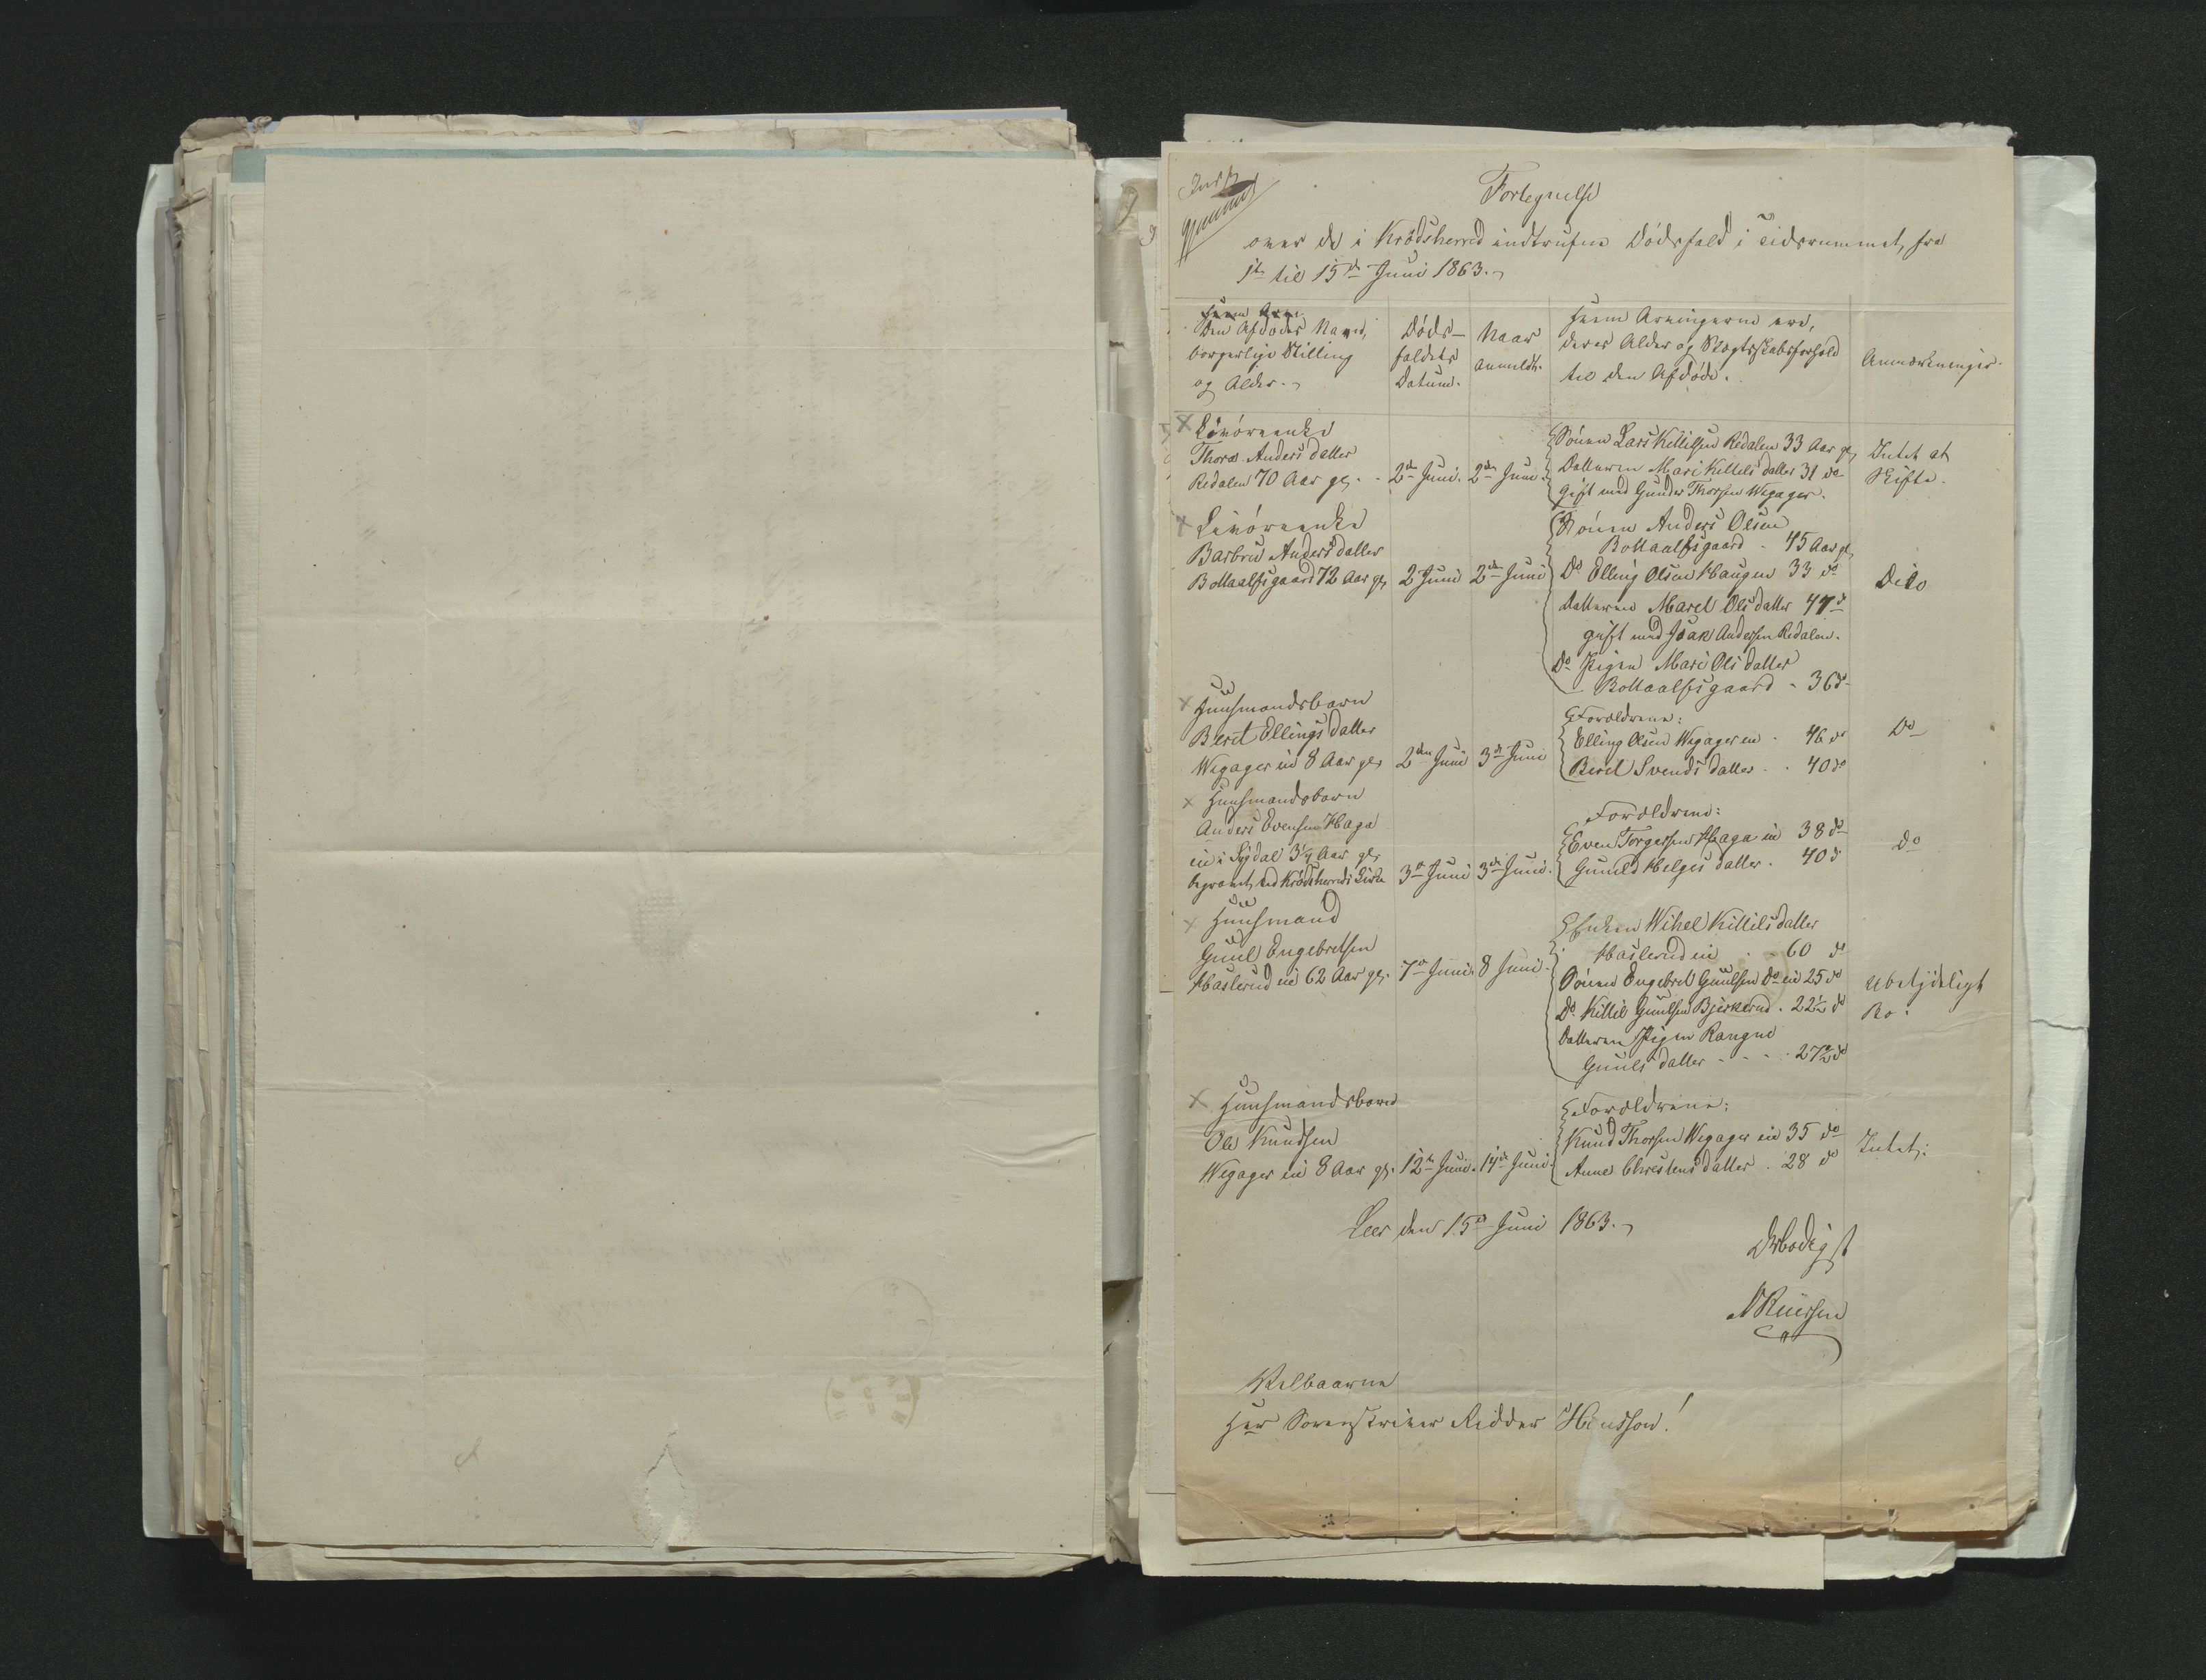 Fortegnelse
over de i Krødsherred indtrufne Dødsfald i Tidsrummet, fra
1ste til 15de Juni 1863.
Den Afdødes Navn,
borgerlige Stilling
og Alder.
Døds-
faldets
Datum.
Naar
anmeldt.
Hvem Arvingerne ere,
deres Alder og Slægtskabsforhold
til den Afdøde.
Anmærkninger.
Livørenke
Thora Andersdatter
Redalen 70 Aar gl. 2den Juni. 2den Juni.
Sønen Lars Kittilsen Redalen 33 Aar gl,
Datteren Mari Kittelsdatter 31 do
gift med Gunder Thorsen Wegager.
Intet at
Skifte.
Livørenke
Barbru Andersdatter
Bottaalfsgaard 72 Aar gl, 2 Juni 2den Juni
Sønen Anders Olsen
Bottaalfsgaard - 45 Aar gl,
Do Elling Olsen Haugen 33 do
Datteren Maret Olsdatter 47 d
gift med Isak Andersen Redalen.
Do Pigen Mari Olsdatter
Bottaalfsgaard - 36 d
Dito
Huusmandsbarn
Berit Ellingsdatter
Wegager eie 8 Aar gl, 2den Juni 3de Juni
Forældrene:
Elling Olsen Wegager eie - 46 do
Beret Svendsdatter - 40 do
Do
Huusmandsbarn
Anders Evensen Haga
eie i Sigdal 3 1/4 Aar gl,
begravet ved Krødsherreds Kirke 3de Juni 3de Juni.
Forældrene:
Even Torgersen Haga eie 38 do
Gunild Helgesdatter. 40 d
do
Huusmand
Guul Engebretsen
Haslerud eie 62 Aar gl. 7de Juni. 8 Juni.
Enken Wibel Kittilsdatter
Haslerud eie - 60 d
Sønen Engebret Guulsen do eie 25 do
Do Kittil Guulsen Bjerkerud. 22 1/2 do
Datteren Pigen Rangne
Guulsdatter - - - 27 1/2 do
Ubetydeligt
Bo.
Huusmandsbarn
Ole Knudsen
Wegager eie 8 Aar gl. 12te Juni. 14de Juni.
Forældrene:
Knud Thorsen Wegager eie 35 do
Anne Chrestensdatter. 28 d
Intet.
Leer den 15de Juni 1863.
Ærbødigst
Velbaarne
Her Sorenskriver Ridder